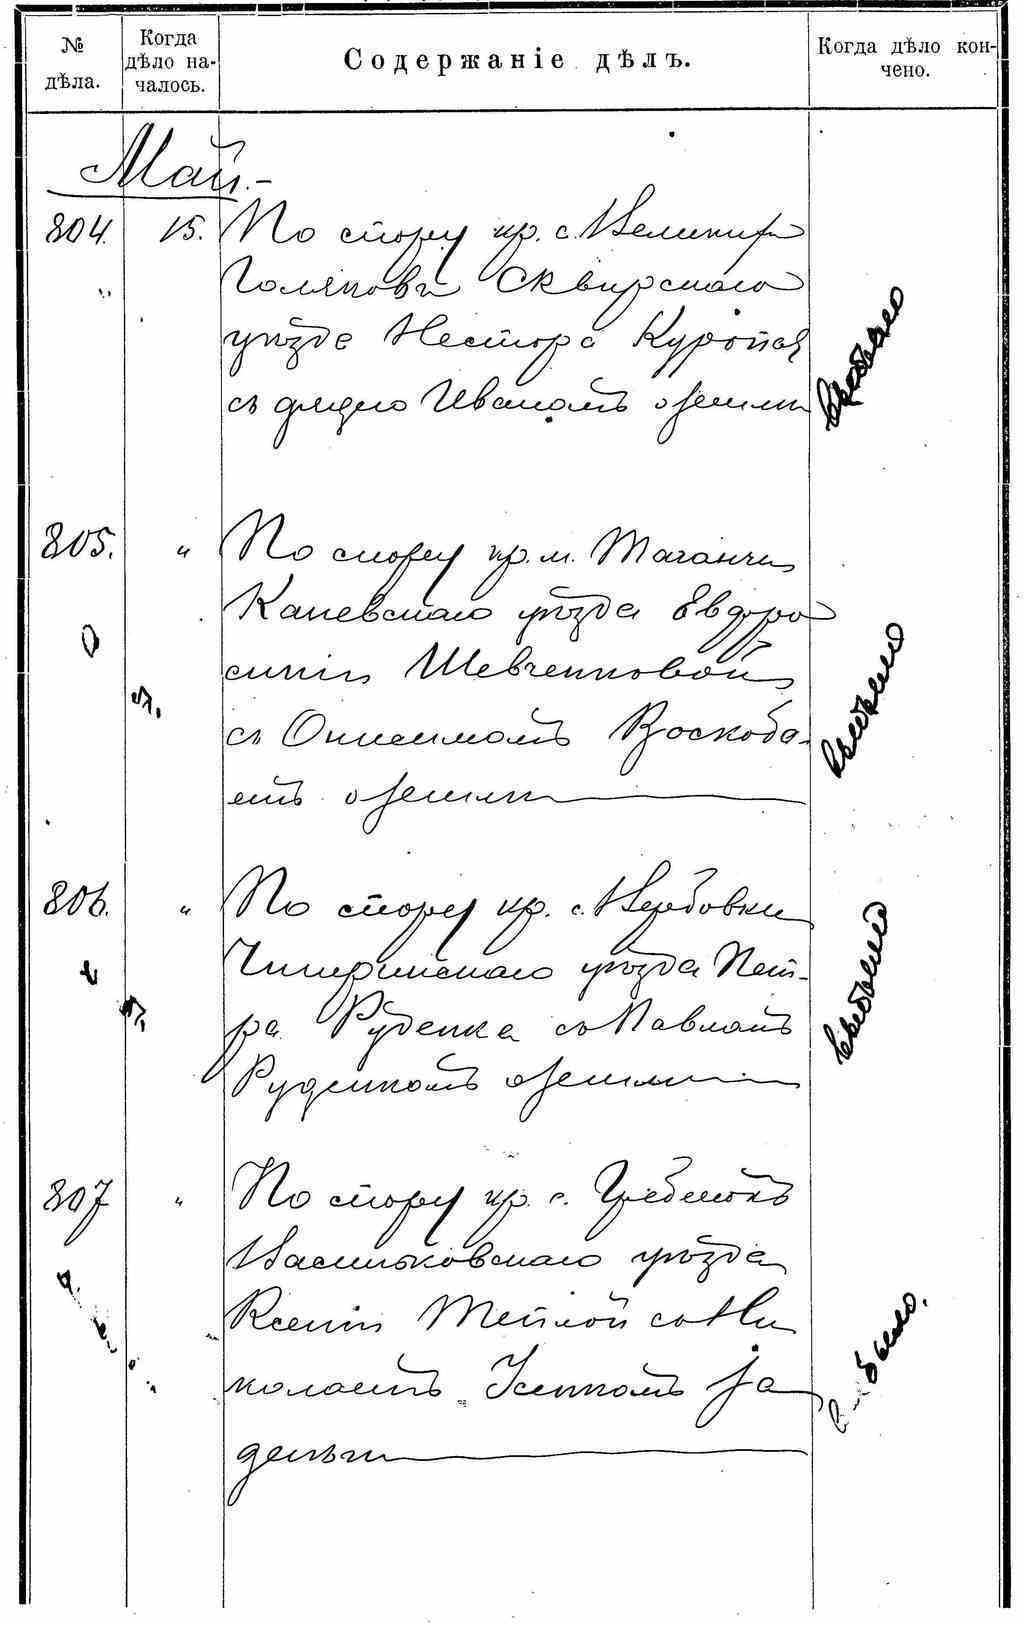 № дѣла.
Когда дѣло на-
чалось.
Содержаніе дѣлъ.
Когда дѣло кон-
чено.
Май.-
804. 15. По спору кр. с. Великихъ
Голяковъ Сквирскаго
уѣзда Нестора Куропая
съ дядею Иваномъ о земли
805. „ По спору кр. м. Таганчи
Каневскаго уѣзда Евфро
синіи Шевченковой
съ Онисимомъ Воскобо-
емъ о земли
806. „ По спору кр. с. Вербовки
Чигиринскаго уѣзда Пет-
ра Руденка съ Павломъ
Руденкомъ о земли
807 „ По спору кр. с. Гребенокъ
Васильковскаго уѣзда
Ксеніи Теплой съ Ни
колаемъ Усикомъ за
деньги